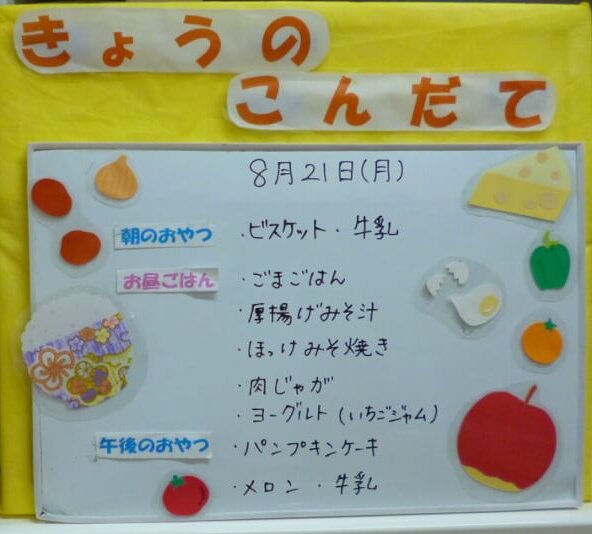 きょうの
こんだて
8月21日(月)
朝のおやつ ・ビスケット・牛乳
お昼ごはん ・ごまごはん
・厚揚げみそ汁
・ほっけみそ焼き
・肉じゃが
・ヨーグルト(いちごジャム)
午後のおやつ ・パンプキンケーキ
・メロン・牛乳